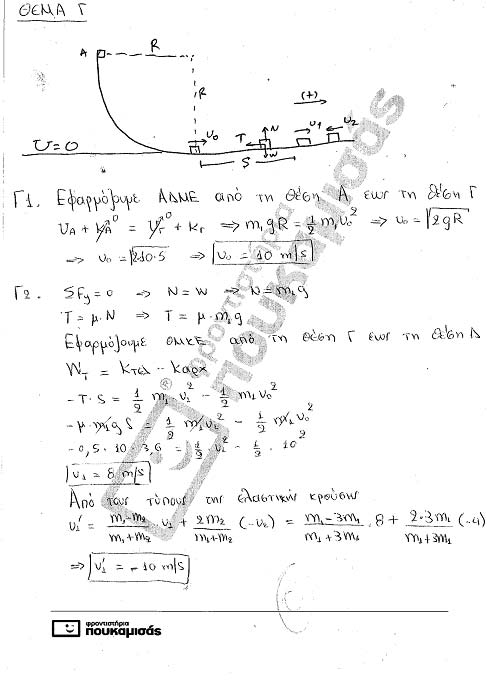 ΘΕΜΑ Γ
A R
R
(+)
υ₀ T N W υ₁ υ₂
U=0
S
Γ1. Εφαρμόζουμε ΑΔΜΕ από τη θέση Α έως τη θέση Γ
U_A + K_A⁰ = U_Γ⁰ + K_Γ ⇒ m₁gR = ½ m₁υ₀² ⇒ υ₀ = √2gR
⇒ υ₀ = √2·10·5 ⇒ υ₀ = 10 m/s
Γ2. ΣFy = 0 ⇒ N = W ⇒ N = m₁g
T = μ·N ⇒ T = μ·m₁g
Εφαρμόζουμε ΘΜΚΕ από τη θέση Γ έως τη θέση Δ
W_T = Κτελ - Καρχ
-T·S = ½ m₁·υ₁² - ½ m₁υ₀²
-μ·m₁gS = ½ m₁υ₁² - ½ m₁υ₀²
-0,5·10·3,6 = ½·υ₁² - ½·10²
υ₁ = 8 m/s
Από τους τύπους της ελαστικής κρούσης
υ₁' = (m₁-m₂)/(m₁+m₂) · υ₁ + 2m₂/(m₁+m₂) (-υ₂) = (m₁-3m₁)/(m₁+3m₁) · 8 + 2·3m₁/(m₁+3m₁) (-4)
⇒ υ₁' = -10 m/s
φροντιστήρια
πουκαμισάς
φροντιστήρια
πουκαμισάς